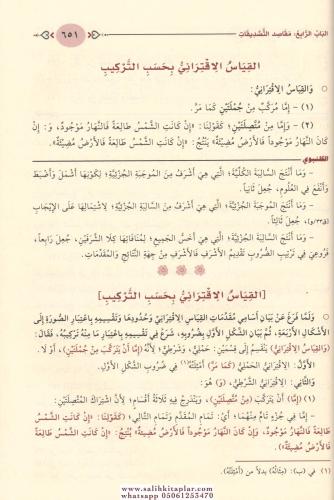 الباب الرابع: مقاصد التصديقات
٦٥١
القِيَاسُ الِاقْتِرَانِيُّ بِحَسَبِ التَّرْكِيبِ
○ وَالقِيَاسُ الِاقْتِرَانِيُّ:
(١) - إِمَّا مُرَكَّبٌ مِنْ جُمْلَتَيْنِ كَمَا مَرَّ.
(٢) - وَإِمَّا مِنْ مُتَّصِلَتَيْنِ؛ كَقَوْلِنَا: «إِنْ كَانَتِ الشَّمْسُ طَالِعَةً فَالنَّهَارُ مَوْجُودٌ، وَ: إِنْ
كَانَ النَّهَارُ مَوْجُوداً فَالأَرْضُ مُضِيئَةٌ» يَنْتُجُ: «إِنْ كَانَتِ الشَّمْسُ طَالِعَةً فَالأَرْضُ مُضِيئَةٌ».
الكلنبوي
- وَمَا أَنْتَجَ السَّالِبَةَ الكُلِّيَّةَ؛ الَّتِي هِيَ أَشْرَفُ مِنَ المُوجَبَةِ الجُزْئِيَّةِ؛ لِكَوْنِهَا أَشْمَلَ وَأَضْبَطَ
وَأَنْفَعَ فِي العُلُومِ، جُعِلَ ثَانِياً.
- وَمَا أَنْتَجَ المُوجَبَةَ الجُزْئِيَّةَ؛ الَّتِي هِيَ أَشْرَفُ مِنَ السَّالِبَةِ الجُزْئِيَّةِ؛ لِاشْتِمَالِهَا عَلَى الإِيجَابِ
جُعِلَ ثَالِثاً.
- وَمَا أَنْتَجَ السَّالِبَةَ الجُزْئِيَّةَ؛ الَّتِي هِيَ أَخَسُّ الجَمِيعِ؛ لِمُنَافَاتِهَا كِلَا الشَّرَفَيْنِ، جُعِلَ رَابِعاً،
فَرُوعِيَ فِي تَرْتِيبِ الضُّرُوبِ تَقْدِيمُ الأَشْرَفِ فَالأَشْرَفِ مِنْ جِهَةِ النَّتَائِجِ وَالمُقَدِّمَاتِ.
[القِيَاسُ الِاقْتِرَانِيُّ بِحَسَبِ التَّرْكِيبِ]
○ وَلَمَّا فَرَغَ عَنْ بَيَانِ أَسَامِي مُقَدِّمَاتِ القِيَاسِ الِاقْتِرَانِيِّ وَحُدُودِهَا وَتَقْسِيمِهِ بِاعْتِبَارِ الصُّورَةِ إِلَى
الأَشْكَالِ الأَرْبَعَةِ، ثُمَّ بَيَانِ الشَّكْلِ الأَوَّلِ بِضُرُوبِهِ، شَرَعَ فِي تَقْسِيمِهِ بِاعْتِبَارِ مَا مِنْهُ تَرْكِيبُهُ، فَقَالَ:
(وَالقِيَاسُ الِاقْتِرَانِيُّ) يَنْقَسِمُ إِلَى قِسْمَيْنِ: حَمْلِيٍّ، وَشَرْطِيٍّ؛ لِأَنَّهُ (إِمَّا أَنْ يَتَرَكَّبَ مِنْ جُمْلَتَيْنِ)، أَوْ لَا.
الأَوَّلُ: الِاقْتِرَانِيُّ الحَمْلِيُّ (كَمَا مَرَّ) أَمْثِلَتُهُ(١) فِي ضُرُوبِ الشَّكْلِ الأَوَّلِ.
وَالثَّانِي: الِاقْتِرَانِيُّ الشَّرْطِيُّ، (وَ) هُوَ:
(١) (إِمَّا) أَنْ يَتَرَكَّبَ (مِنْ مُتَّصِلَتَيْنِ)، وَيَنْقَسِمُ إِلَى ثَلَاثَةِ أَقْسَامٍ؛ لِأَنَّ اشْتِرَاكَ المُتَّصِلَتَيْنِ:
- إِمَّا فِي جُزْءٍ تَامٍّ مِنْهُمَا؛ أَيْ: تَمَامِ المُقَدَّمِ وَتَمَامِ التَّالِي؛ (كَقَوْلِنَا: «إِنْ كَانَتِ الشَّمْسُ
طَالِعَةً فَالنَّهَارُ مَوْجُودٌ، وَإِنْ كَانَ النَّهَارُ مَوْجُوداً فَالأَرْضُ مُضِيئَةٌ» يُنْتِجُ: «إِنْ كَانَتِ الشَّمْسُ طَالِعَةً
فَالأَرْضُ مُضِيئَةٌ»).
(١) في (ب): (مثاله) بدلاً من (أمثلته).
www.salihkitaplar.com
whatsapp 05061253470